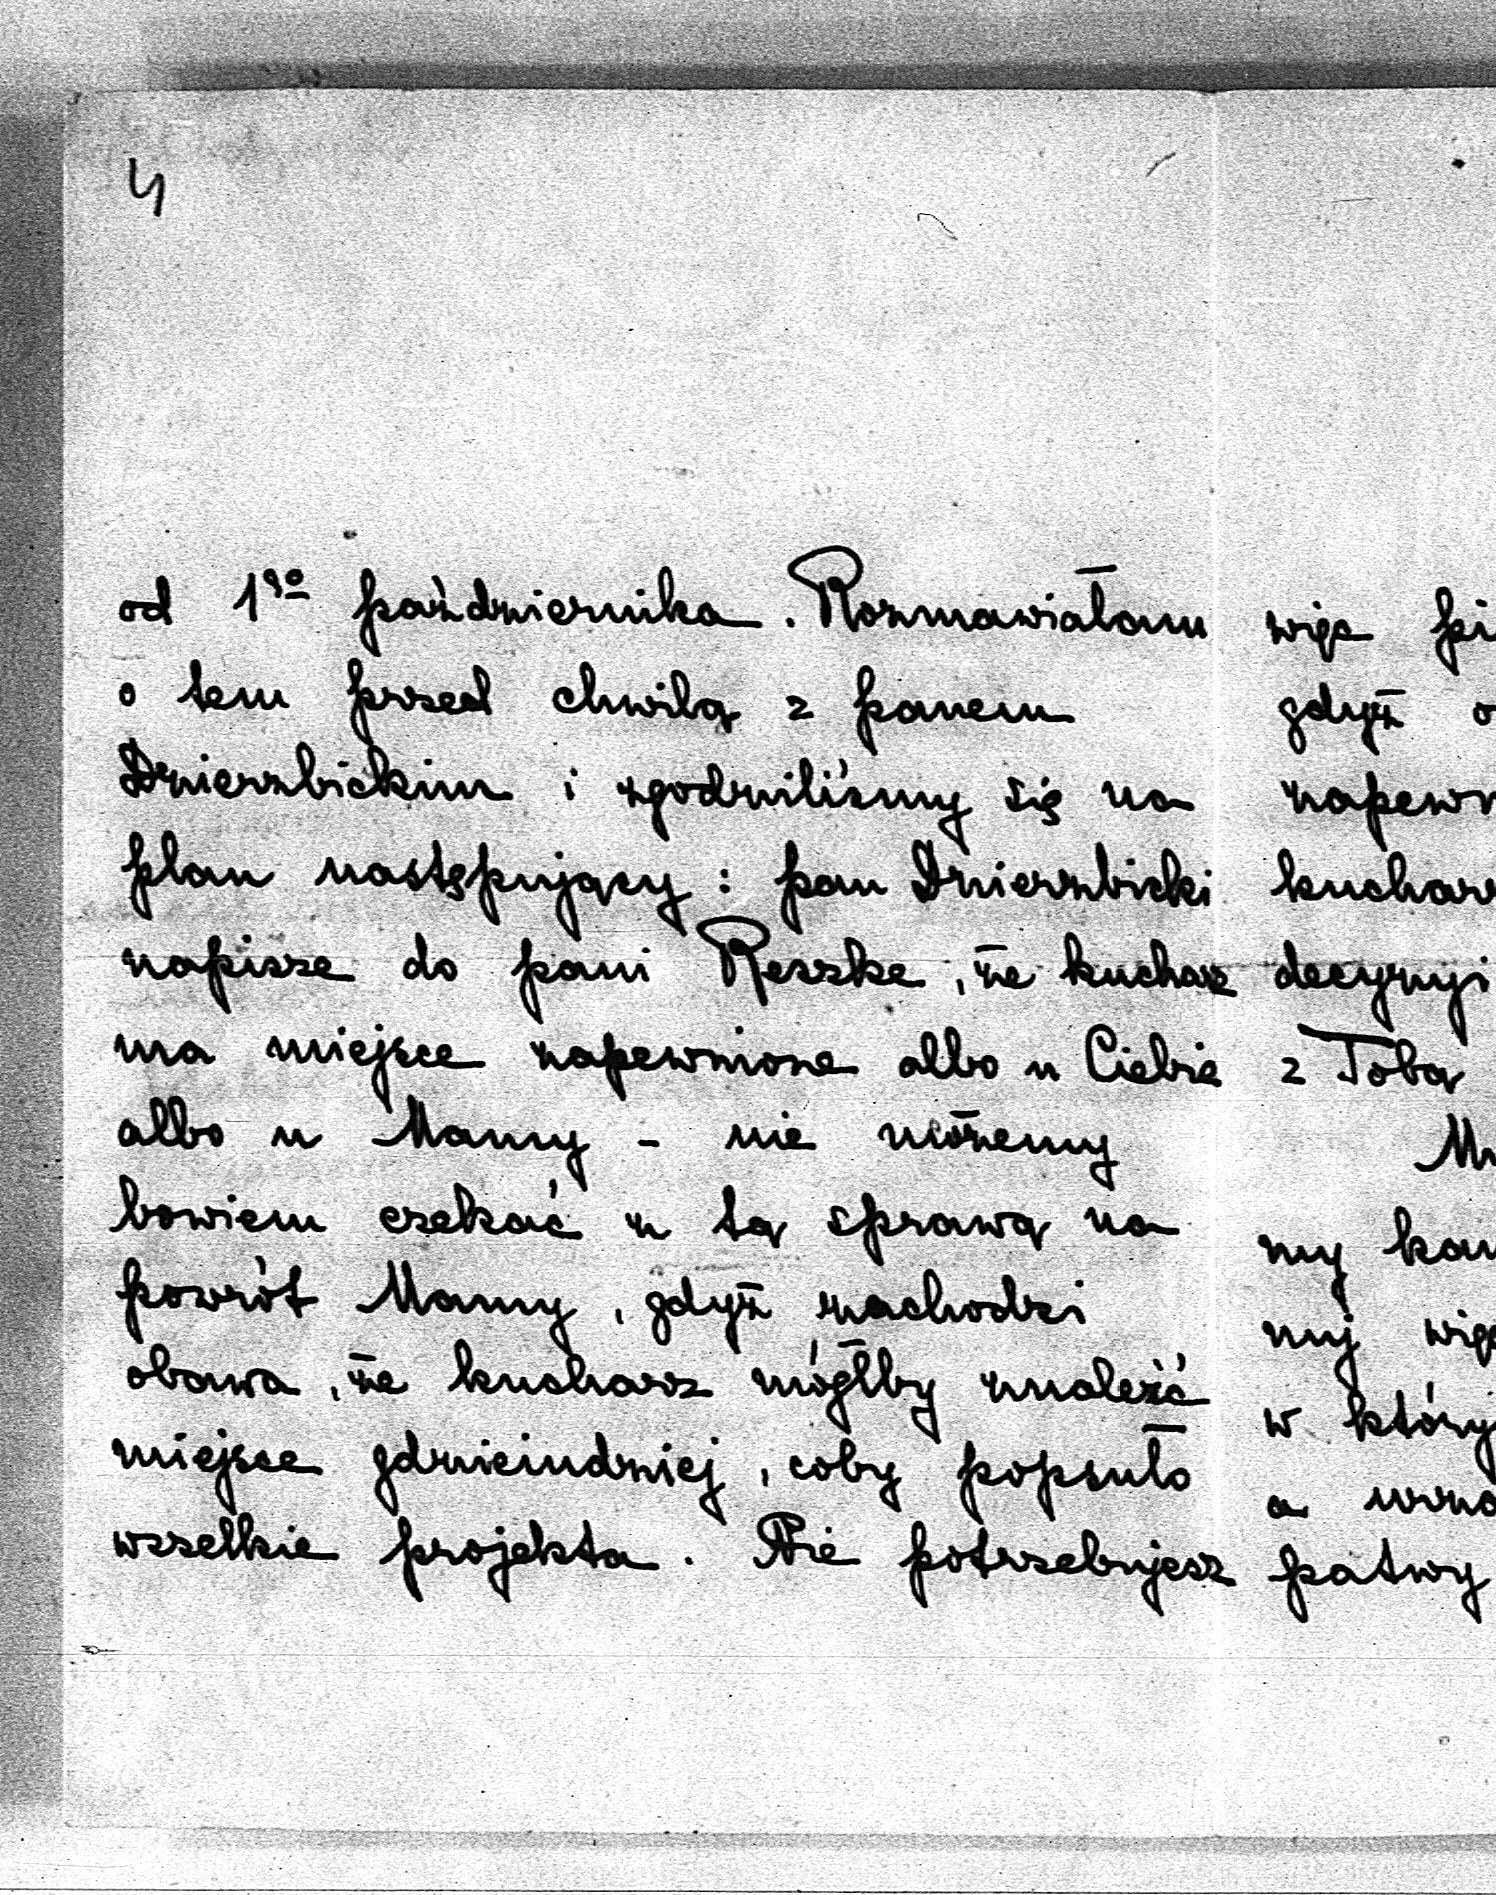 4
od 1go października. Rozmawiałam
o tem przed chwilą z panem
Dzierzbickim i zgodziliśmy się na
plan następujący: pan Dzierzbicki
napisze do pani Reszke, że kucharz
ma miejsce zapewnione albo u Ciebie
albo u Mamy - nie możemy
bowiem czekać z tą sprawą na
powrót Mamy, gdyż zachodzi
obawa, że kucharz mógłby znaleźć
miejsce gdzieindziej, coby popsuło
wszelkie projekta. Nie potrzebujesz
więc
gdyż
decyzyi
z Tobą
my
nuj
w
a